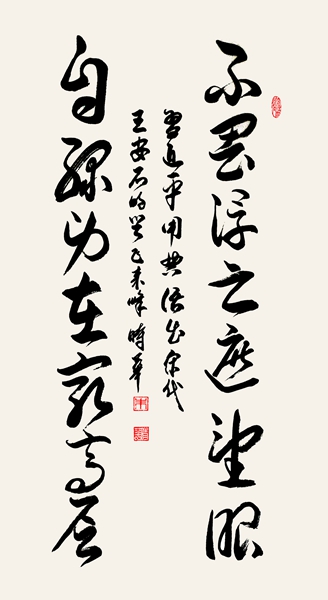 不畏浮云遮望眼
習近平用典语出宋代
王安石的登飞来峰 時华
自缘身在最高层